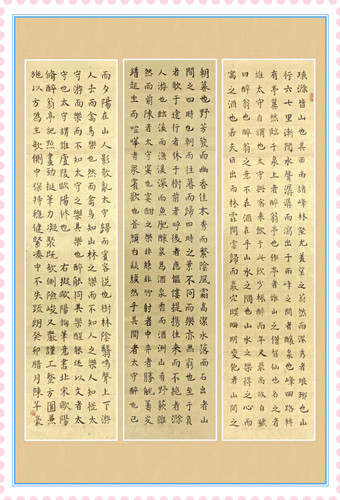 環滁皆山也其西南諸峰林壑尤美望之蔚然而深秀者琅琊也山
行六七里漸聞水聲潺潺而瀉出于兩峰之間者釀泉也峰回路轉
有亭翼然臨于泉上者醉翁亭也作亭者誰山之僧智仙也名之者
誰太守自謂也太守與客來飲于此飲少輒醉而年又最高故自號
曰醉翁也醉翁之意不在酒在乎山水之間也山水之樂得之心而
寓之酒也若夫日出而林霏開雲歸而巖穴暝晦明變化者山間之
朝暮也野芳發而幽香佳木秀而繁陰風霜高潔水落而石出者山
間之四時也朝而往暮而歸四時之景不同而樂亦無窮也至于負
者歌于途行者休于樹前者呼後者應傴僂提攜往來而不絕者滁
人游也臨溪而漁溪深而魚肥釀泉為酒泉香而酒洌山肴野蔌雜
然而前陳者太守宴也宴酣之樂非絲非竹射者中弈者勝觥籌交
錯起坐而喧嘩者衆賓歡也蒼顏白髮頹然乎其間者太守醉也已
而夕陽在山人影散亂太守歸而賓客從也樹林陰翳鳴聲上下游
人去而禽鳥樂也然而禽鳥知山林之樂而不知人之樂人知從太
守游而樂而不知太守之樂其樂也醉能同其樂醒能述以文者太
守也太守謂誰廬陵歐陽修也 右擬歐陽詢筆意書北宋歐陽
脩醉翁亭記點畫勁挺筆力凝聚既欹側險峻又嚴謹工整方圓兼
施以方為主欹側中保持穩健緊湊中不失疏朗癸卯臘月陳